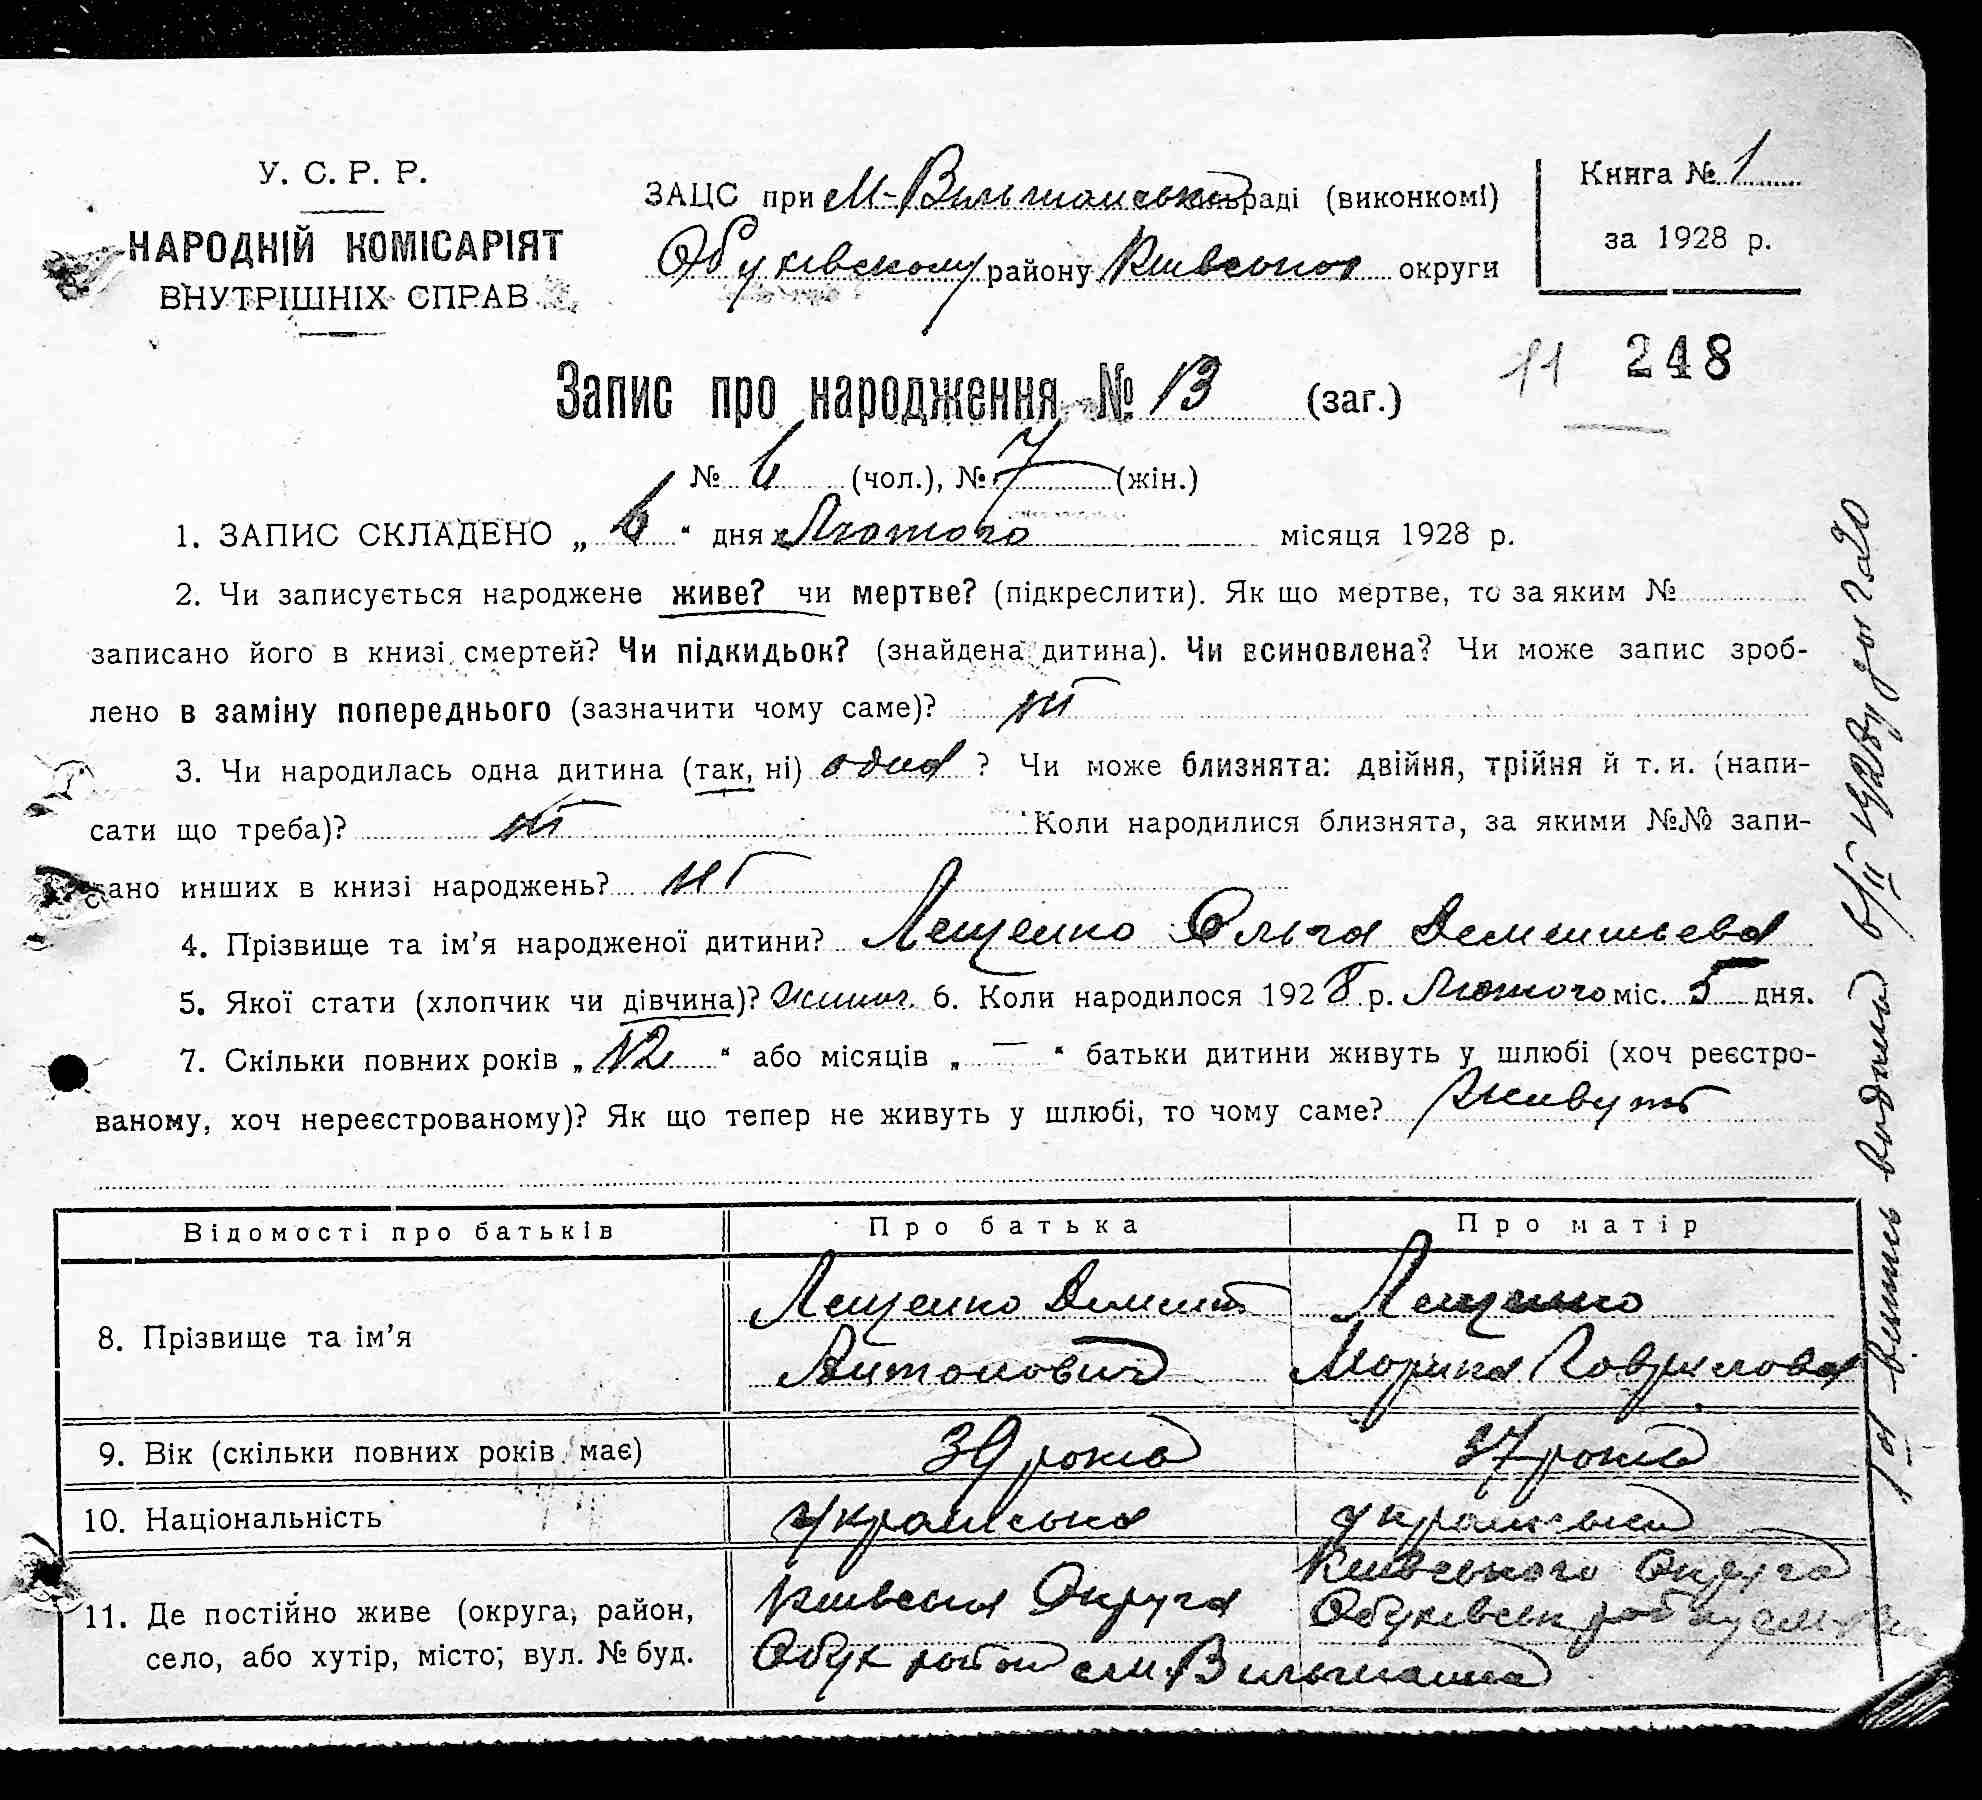 У. С. Р. Р.
НАРОДНІЙ КОМІСАРІЯТ
ВНУТРІШНІХ СПРАВ
ЗАЦС при М-Вильшанській раді (виконкомі)
Обуківському району Київської округи
Книга № 1
за 1928 р.
11 248
Запис про народження № 13 (заг.)
№ 6 (чол.), № 7 (жін.)
1. ЗАПИС СКЛАДЕНО „ 6 “ дня Лютого місяця 1928 р.
2. Чи записується народжене живе? чи мертве? (підкреслити). Як що мертве, то за яким №
записано його в книзі смертей? Чи підкидьок? (знайдена дитина). Чи всиновлена? Чи може запис зроб-
лено в заміну попереднього (зазначити чому саме)? ні
3. Чи народилась одна дитина (так, ні) одна ? Чи може близнята: двійня, трійня й т. и. (напи-
сати що треба)? ні Коли народилися близнята, за якими №№ запи-
сано инших в книзі народжень? ні
4. Прізвище та ім’я народженої дитини? Лещенко Ольга Дементьева
5. Якої стати (хлопчик чи дівчина)? жіноч. 6. Коли народилося 1928 р. Лютого міс. 5 дня.
7. Скільки повних років „ 12 “ або місяців „ — “ батьки дитини живуть у шлюбі (хоч реєстро-
ваному, хоч нереєстрованому)? Як що тепер не живуть у шлюбі, то чому саме? живуть
Відомості про батьків Про батька Про матір
8. Прізвище та ім’я
Лещенко Демент
Антонович
Лещенко
Морина Гаврилова
9. Вік (скільки повних років має) 39 років 37 років
10. Національність українська українська
11. Де постійно живе (округа, район,
село, або хутір, місто; вул. № буд.
Київська Округа
Обук район см. Вильшанка
Київського Округа
Обуківськ
випись видано 6/II 1928 у за № 20